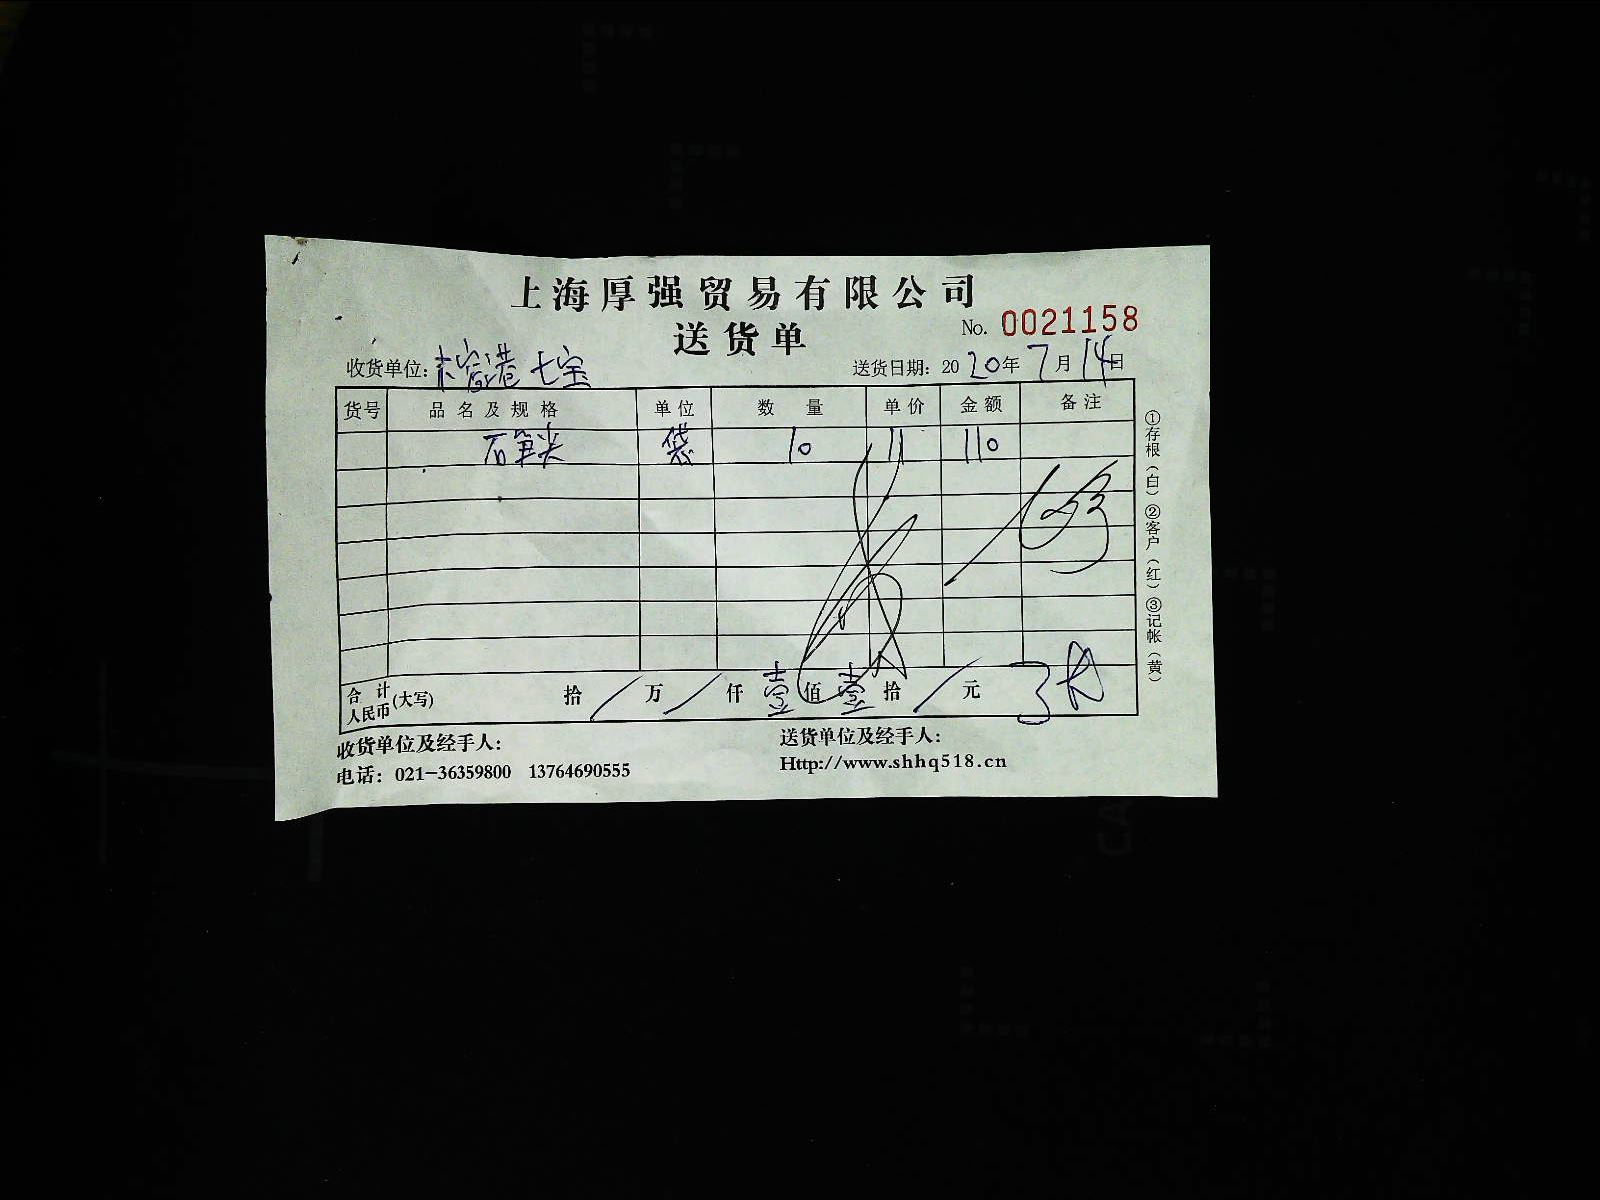 上海厚强贸易有限公司
送货单
No. 0021158
收货单位: 七宝 送货日期: 2020年7月14日
货号 品名及规格 单位 数量 单价 金额 备注
石笋尖 袋 10 11 110
合计人民币(大写) 拾/万/仟壹佰壹拾/元
收货单位及经手人: 送货单位及经手人:
电话: 021-36359800 13764690555 Http://www.shhq518.cn
①存根(白)②客户(红)③记帐(黄)